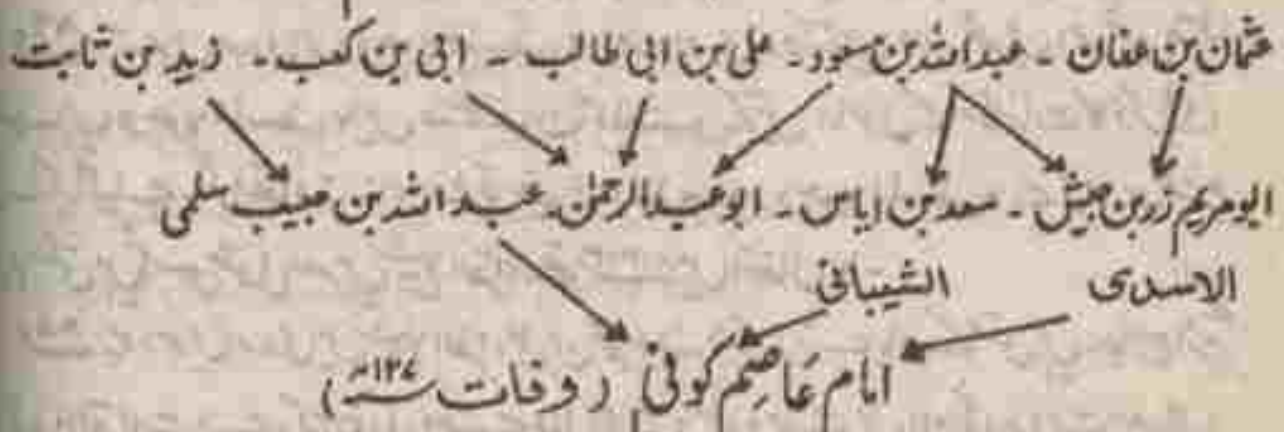 عثمان بن عفان ۔ عبداللہ بن مسعود ۔ علی بن ابی طالب ۔ ابی بن کعب ۔ زید بن ثابت
ابو مریم زر بن حبیش ۔ سعد بن ایاس ۔ ابو عبدالرحمٰن عبداللہ بن حبیب سلمی
الاسدی الشیبانی
امام عَاصِم کوفی (وفات ۱۲۷ھ)